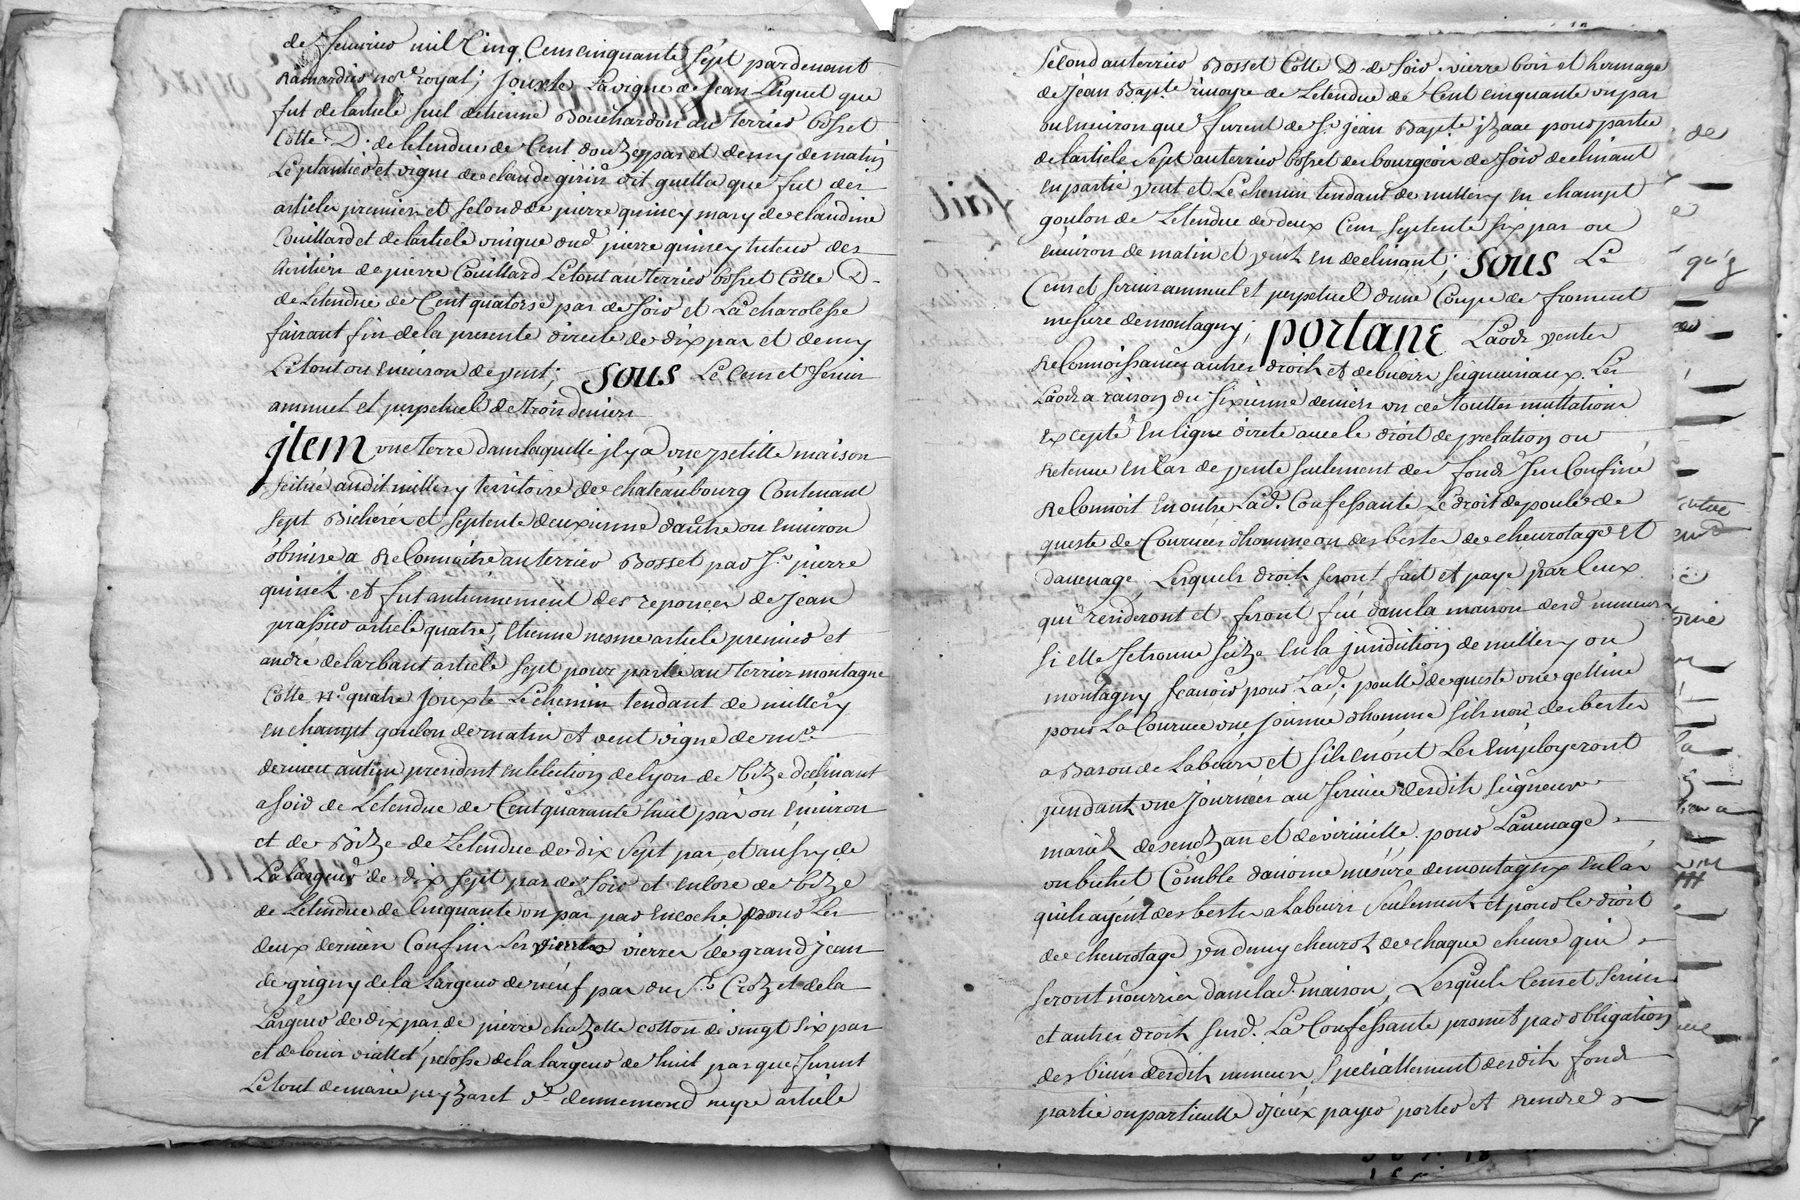 de fevrier mil Cinq Cens cinquante Sept pardevant
Ramardier no.re royal; jouxte La vigne de jean Lesquet que
fut de larticle huit detienne Bouchardon au Terrier Bosset
Cotte D. de letendue de Cent douze pas et demy de matin
Le plantier et vigne de claude girin dit guetta que fut des
articles premier et second de pierre quiney mary de claudine
Couillard et de larticle unique dud. pierre quiney tuteur des
heritiers de pierre Couillard Le tout au Terrier Bosset Cotte D.
de Letendue de Cent quatorze pas de soir et La charolesse
faisant fin de la presente directe de dix pas et demy
Le tout ou environ de vent; Sous Le Cens et servis
annuel et perpetuel de trois deniers
jtem une Terre dans laquelle jl y a une petitte maison
scitué audit millery territoire de chateaubourg Contenant
sept Bicherées et septente deuxieme dautre ou environ
obmise a Reconnoitre au terrier Bosset par S.r pierre
quinet et fut antiennement des reponces de jean
prassier article quatre, Etienne nesme article premier et
andré delarbant article sept pour partie au Terrier montagne
Cotte N.o quatre jouxte Le chemin tendant de millery
en champt goulon de matin et vent vigne de m.r
derieu antien president en lelection de lyon de bize declinant
a soir de Letendue de Cent quarante huit pas ou environ
et de Bize de Letendue de dix sept pas, et aussy de
La largeur de dix sept pas de soir et encore de bize
de Letendue de Cinquante un pas par encoche pour Les
deux derniers Confins Les vierres de grand jean
de grigny de la Largeur de neuf pas du S.r Crozet de la
Largeur de dix pas de pierre chazette cotton de vingt six pas
et de louis viallet pelosse de la largeur de huit pas que furent
Le tout de marie peyzaret v.e dennemond neyre article
Second au terrier Bosset Cotte D. de soir. vierre bois et hermage
de jean Bap.te rivoyre de Letendue de Cent cinquante un pas
ou environ que furent de S.r jean Bap.te jzaac pour partie
de larticle sept au terrier bosset des bourgeois de soir declinant
en partie vent et Le chemin tendant de millery en champt
goulon de Letendue de deux Cens septente six pas ou
environ de matin et vent en declinant; Sous Le
Cens et servis annuel et perpetuel dune Coupe de froment
mesure de montagny; portant Laods ventes
Reconnoissances autres droits et debvoirs seigneuriaux. Les
Laods a raison du sixieme denier en de touttes muttations
excepté en ligne directe avec le droit de prelation ou
Retenue en Cas de vente seulement des fonds sus Confinés
Reconnoit en outre Lad. Confessante Le droit de poule de
queste de Courvées dhomme ou des bestes de chevrotage et
davenage, Lesquels droits seront fait et payé par Ceux
qui resideront et feront feu dans la maison desd. mineurs
si elle se trouve scize en la jurisdiction de millery ou
montagny scavoir pour Lad. poulle de queste une gelline
pour La Courvée une journée dhomme sils nont des bestes
a Bas ou de Labeurs et sils en ont Les employeront
pendant une journée au service desdits seigneurs
mariés desenozan et deviriville. pour Lavenage
un bichet Comble davoine mesure de montagny en Cas
quils ayent des bestes a labeurs seulement et pour le droit
de chevrotage un demy chevrot de chaque chevre qui
seront nourries dans lad. maison, Lesquels Cens et servis
et autres droits susd. La Confessante promet par obligation
des biens desdits mineurs, specialement desdits fonds
partie ou particulle djceux payer porter et rendre